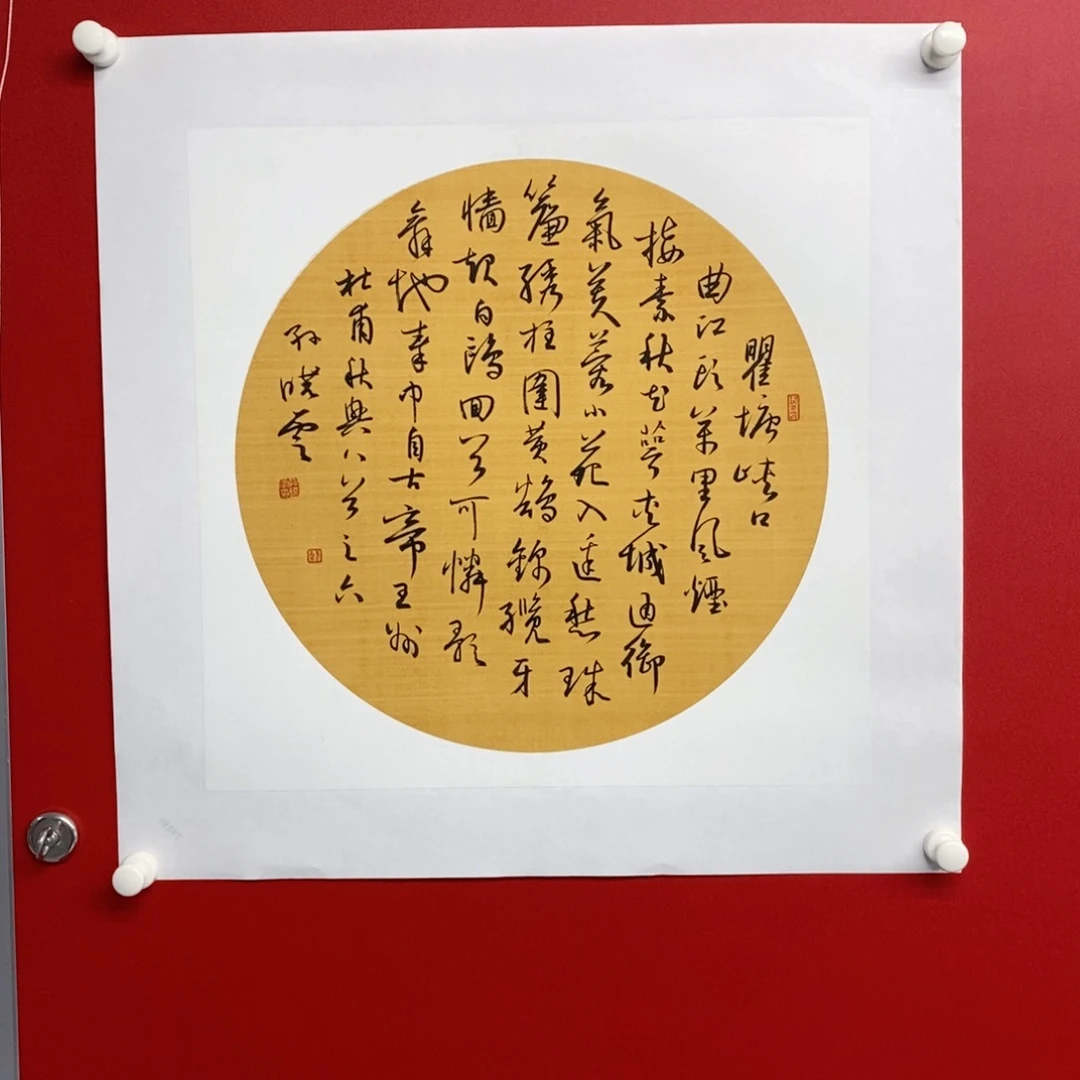 瞿塘峡口
曲江頭萬里風煙
接素秋花萼夾城通御
氣芙蓉小苑入邊愁珠
簾綉柱圍黄鵠錦纜牙
檣起白鷗回首可憐歌
舞地秦中自古帝王州
杜甫秋興八首之六
孫曉雲